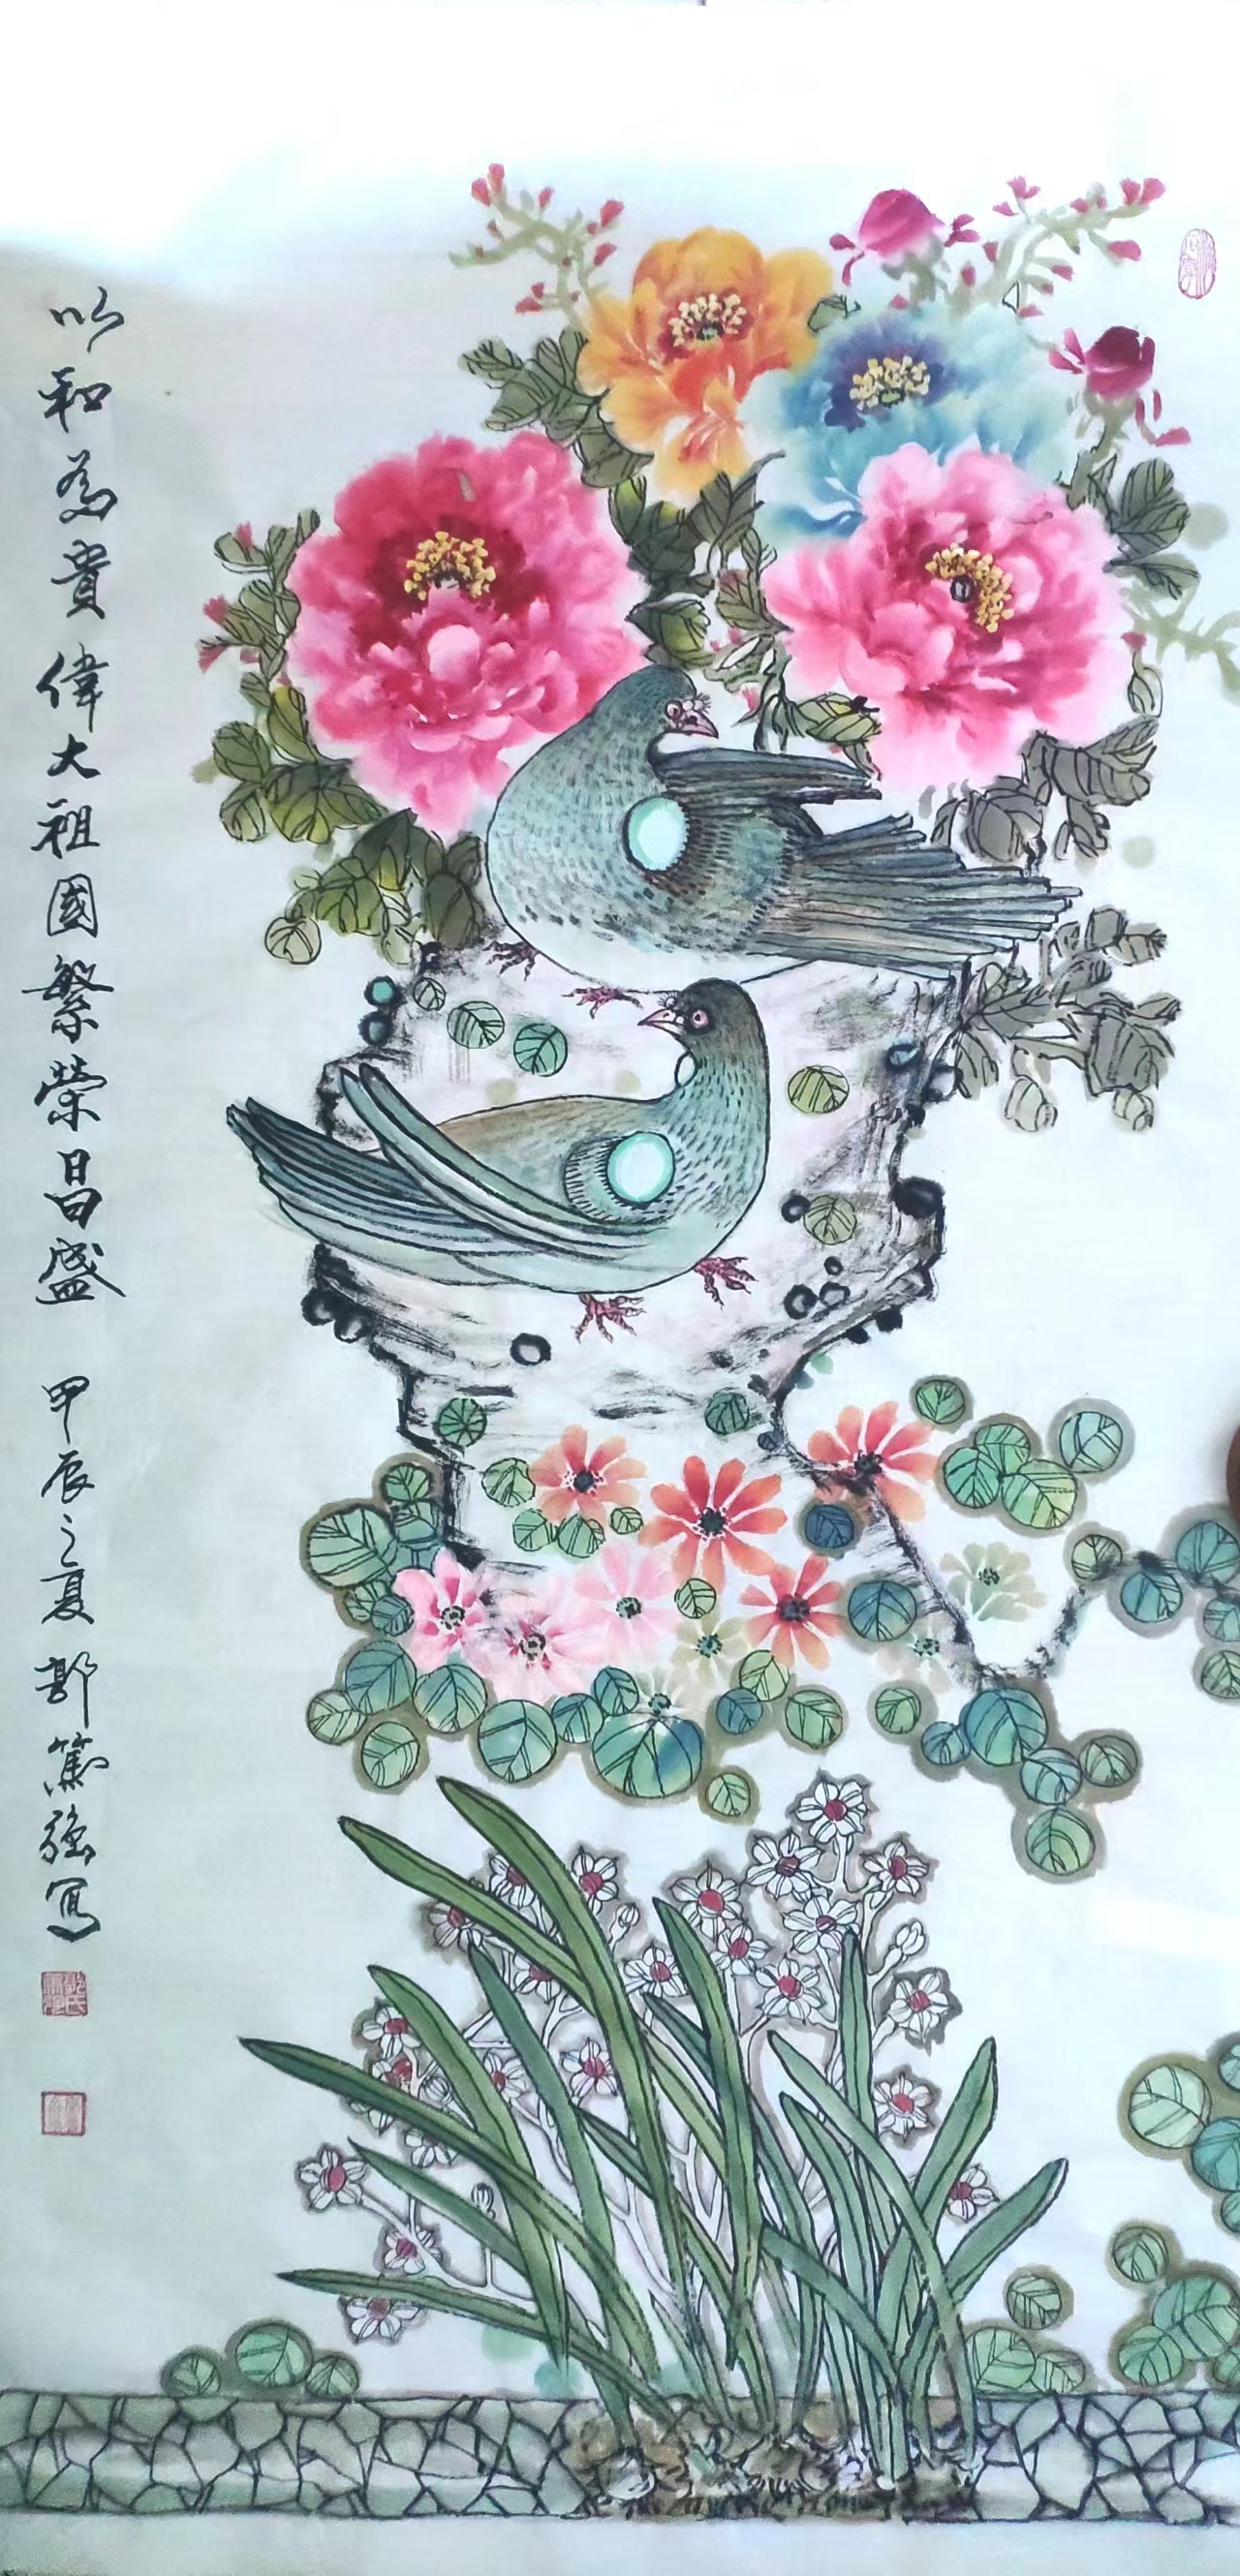 以和為貴偉大祖國繁榮昌盛
甲辰之夏鄭篤強寫